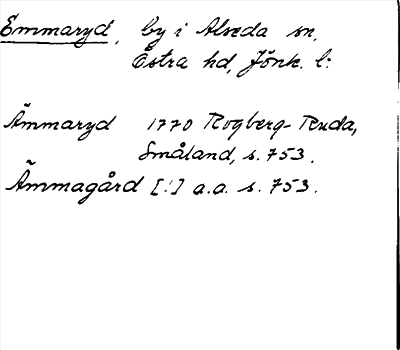 Emmaryd, by i Alseda sn,
Östra hd, Jönk. l:
Ämmaryd 1770 Rogberg-Ruda,
Småland, s. 753.
Ämmagård [!] a.a. s. 753.